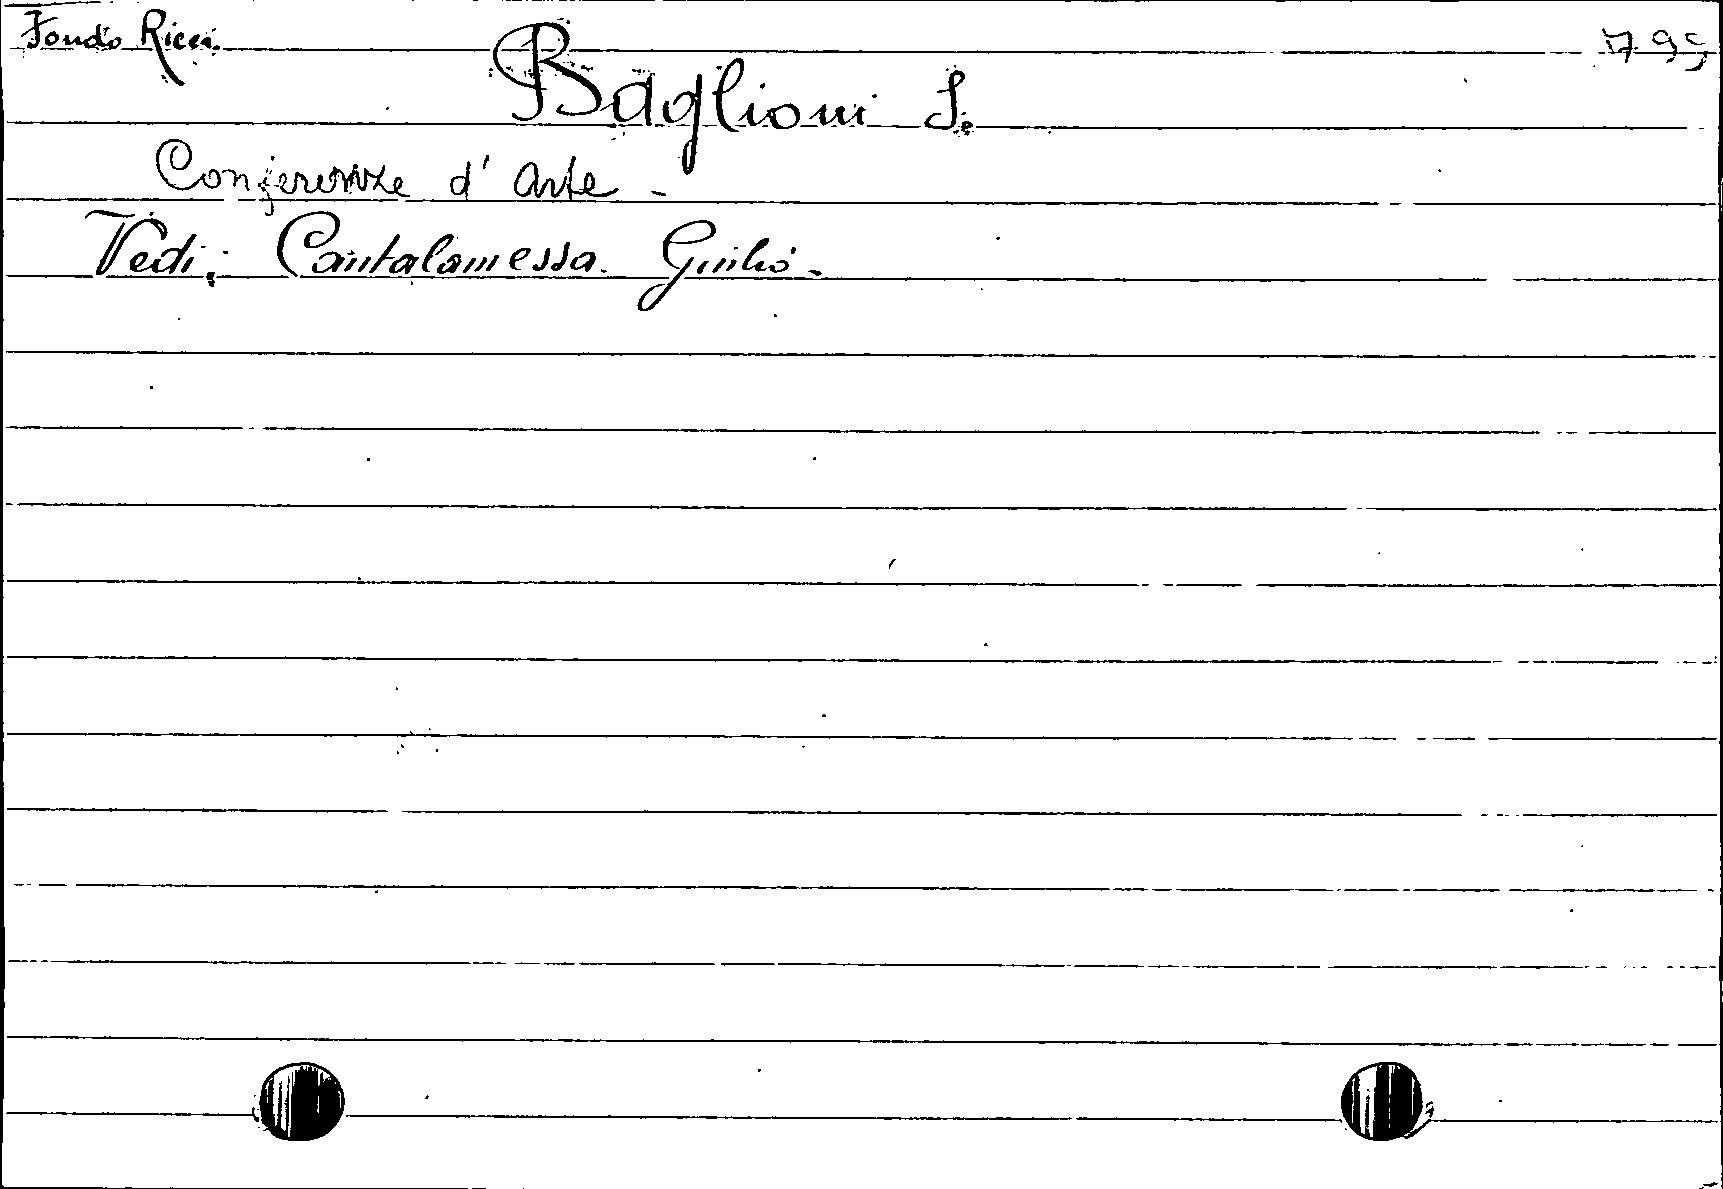 Fondo Ricci. 1795
Baglioni S.
Conferenze d' Arte -
Vedi; Cantalamessa. Giulio.